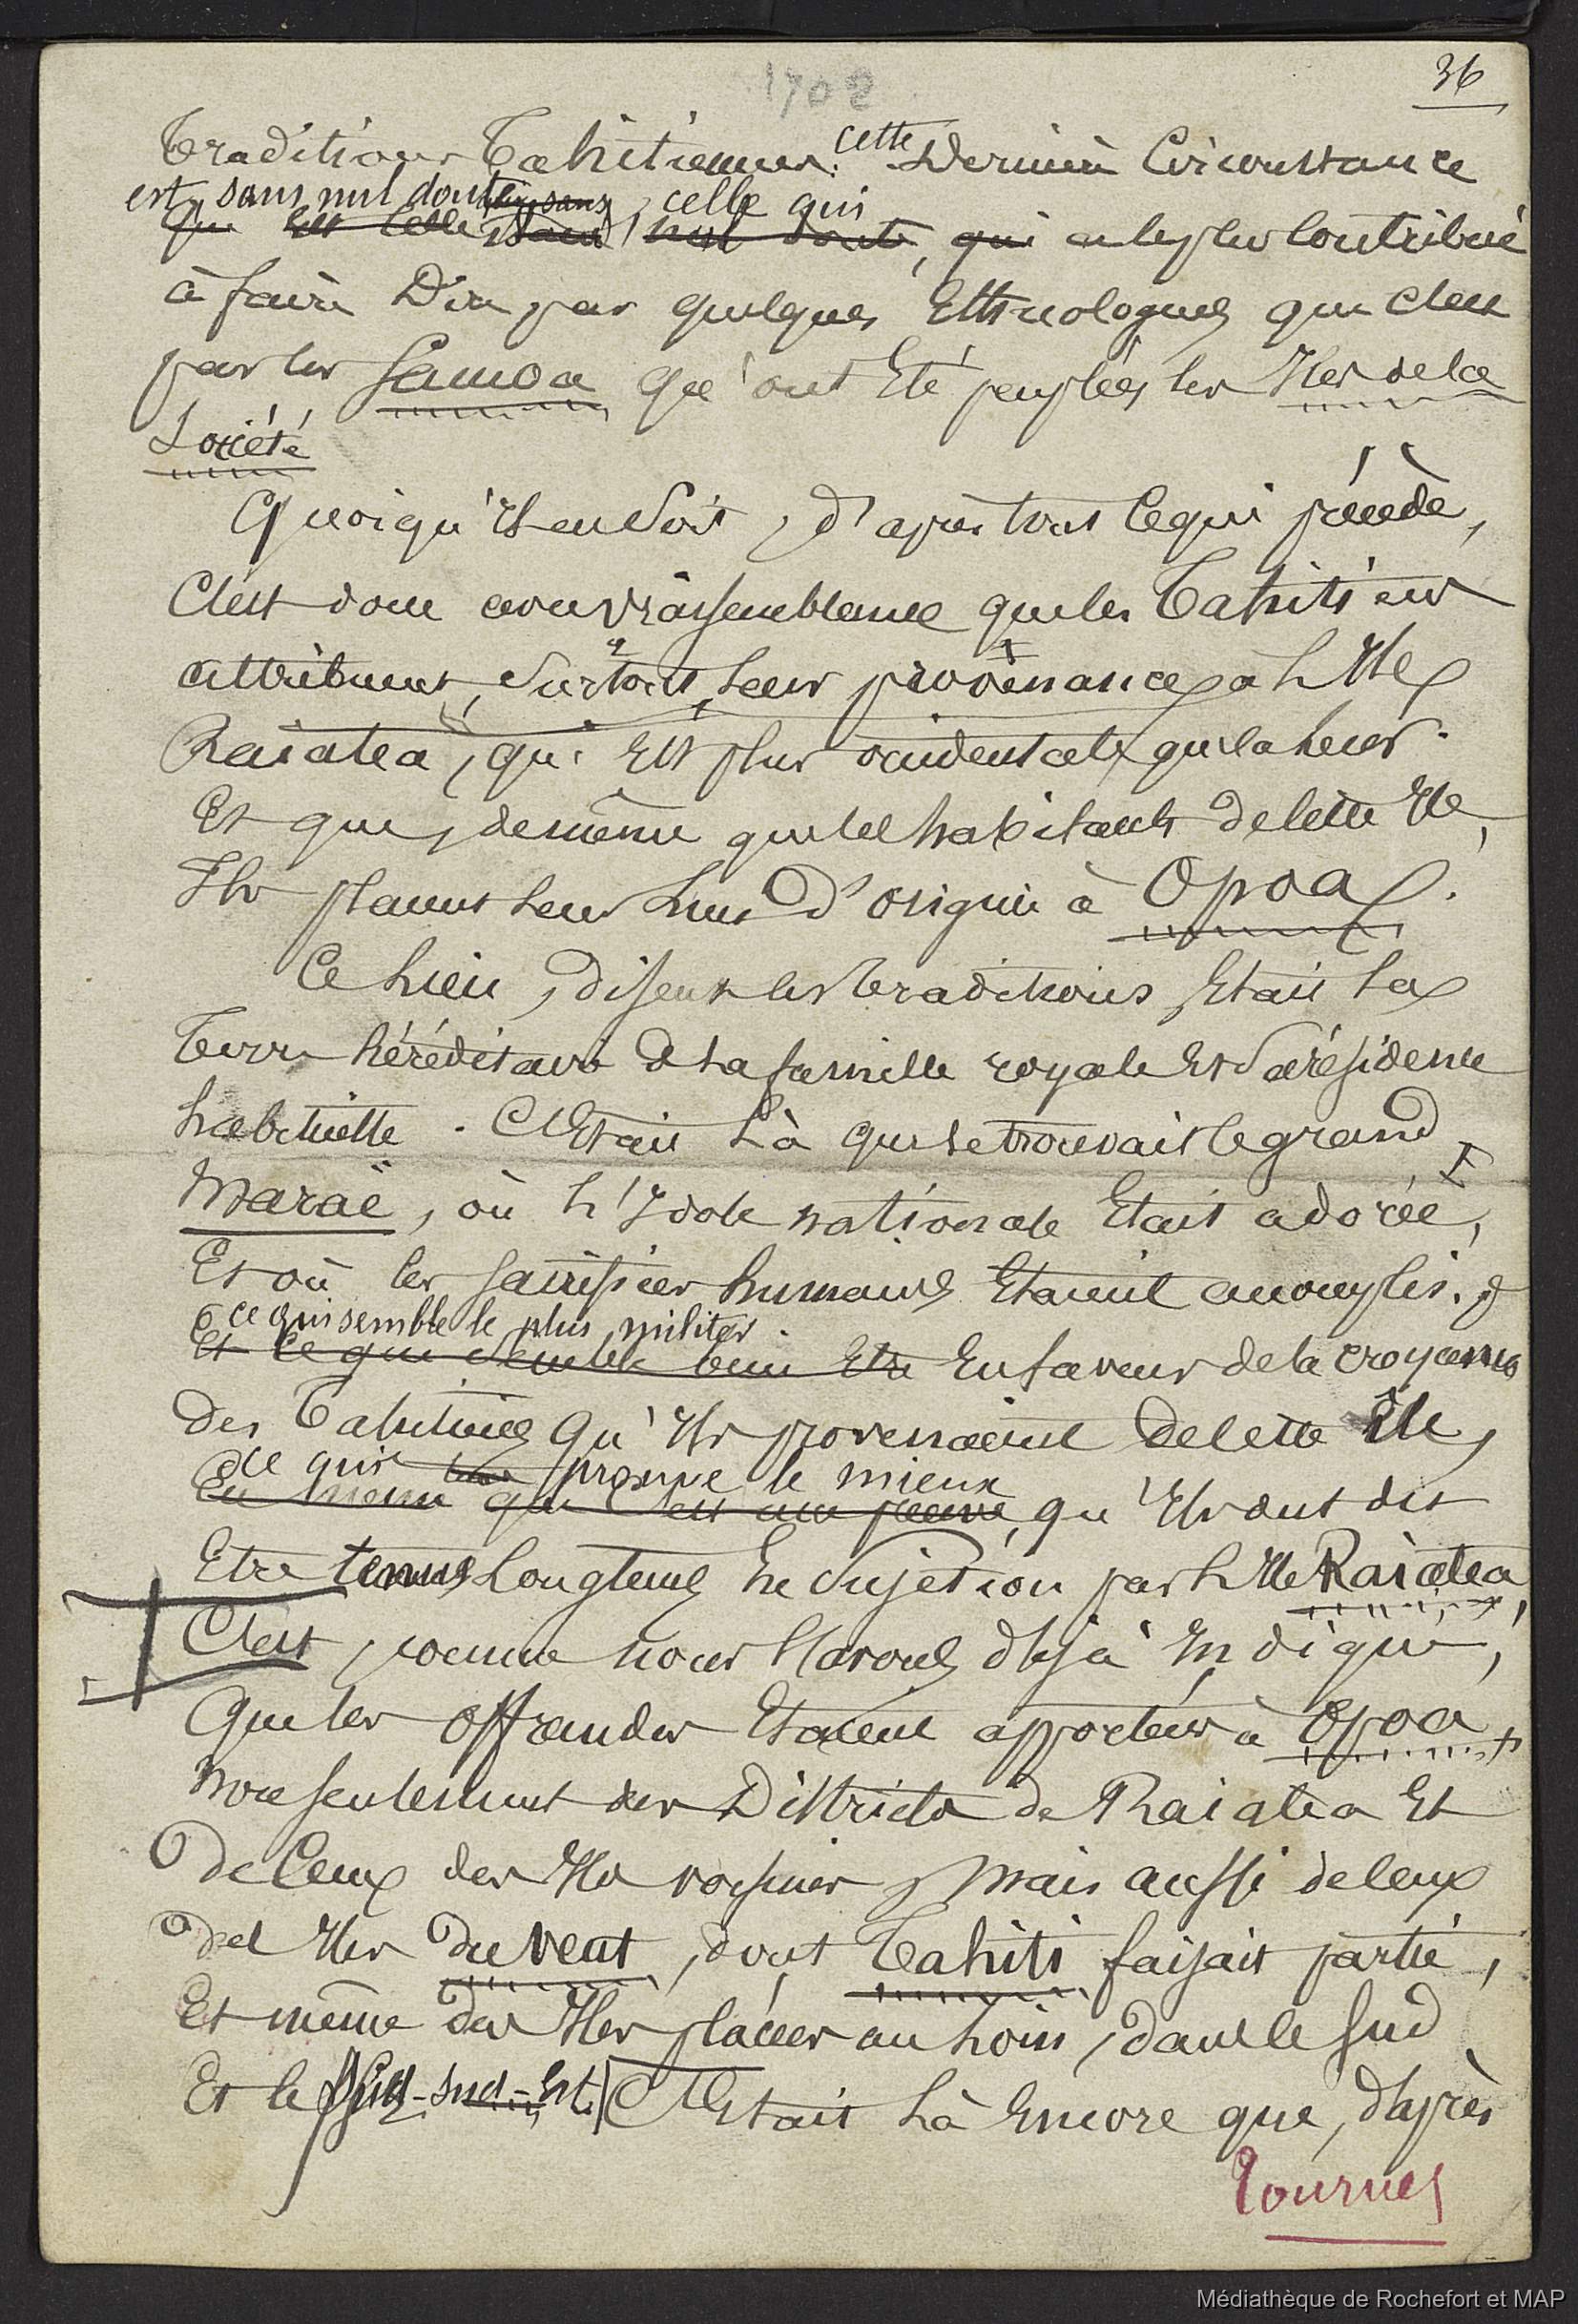 36
1702
Traditions Tahitiennes. cette Dernière Circonstance
est, sans nul doute, celle qui
a le plus Contribué
à faire Dire par quelques Ethnologues que C'est
par les Samoa qu'ont Eté peuplées les Iles de la
Société
Quoiqu'il en Soit, d'après tout Ce qui précède,
C'est donc avec vraissemblance que les Tahitiens
attribuent, Surtout, leur provenance à l'Ile
Raiatea, qui Est plus occidentale que la leur.
Et que, de même que les habitants de Cette Ile,
Ils placent leur lieu D'origine à Opoa.
Ce lieu, disent les Traditions, Etait la
Terre héréditaire de la famille royale Et Sa résidence
habituelle. C'Etait là que se trouvait le grand
Maraë, où l'Idole nationale Etait adorée,
Et où les sacrifices humains Etaient accomplis. &
ce qui semble le plus militer
Et Ce qui Semble bien Etre En faveur de la croyance
Des Tahitiens qu'Ils provenaient de Cette Ile,
ce qui prouve le mieux
En même que C'est une preuve, qu'Ils ont dit
Etre tenus Longtems En Sujetion par l'Ile Raiatea,
C'est, comme nous l'avons déjà Indiqué,
Que les offrandes Etaient apportées à Opoa,
Non seulement des Districts de Raiatea Et
de Ceux des Iles voisines, Mais aussi de Ceux
des Iles du vent, dont Tahiti faisait partie,
Et même des Iles placées au loin, dans le Sud
Et le Sud-Sud-Est. C'Etait là Encore que, d'après
Tournez
Médiathèque de Rochefort et MAP